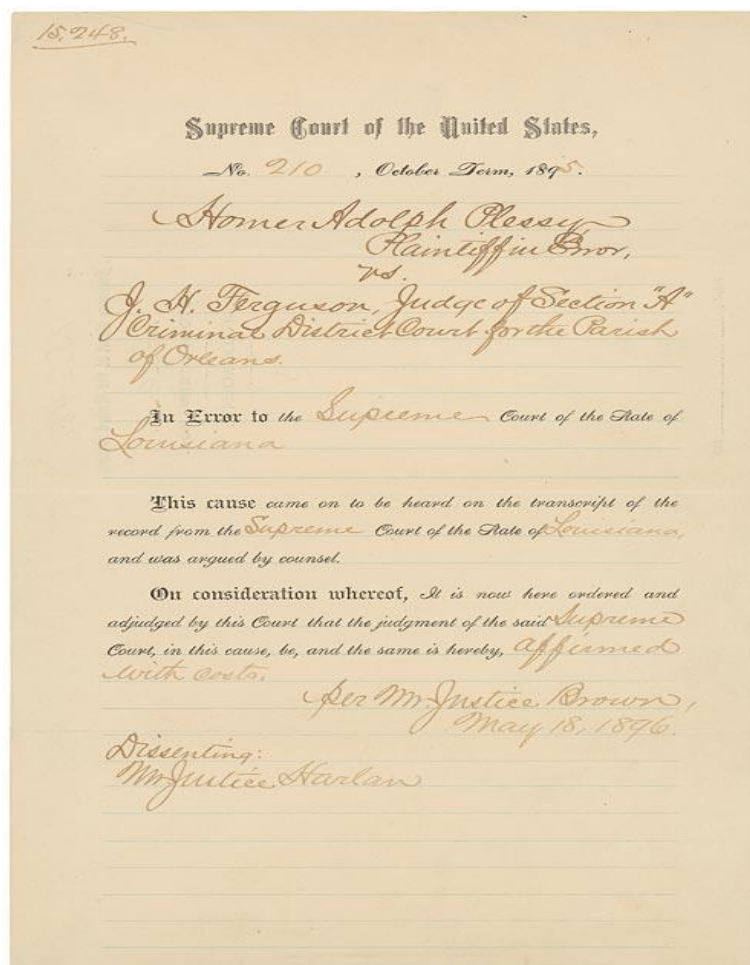 15,248.
Supreme Court of the United States,
No. 210, October Term, 1895.
Homer Adolph Plessy
Plaintiff in Error,
vs.
J. H. Ferguson, Judge of Section "A"
Criminal District Court for the Parish
of Orleans.
In Error to the Supreme Court of the State of
Louisiana
This cause came on to be heard on the transcript of the
record from the Supreme Court of the State of Louisiana,
and was argued by counsel.
On consideration whereof, It is now here ordered and
adjudged by this Court that the judgment of the said Supreme
Court, in this cause, be, and the same is hereby, affirmed
with costs.
per Mr. Justice Brown,
May 18, 1896.
Dissenting:
Mr. Justice Harlan